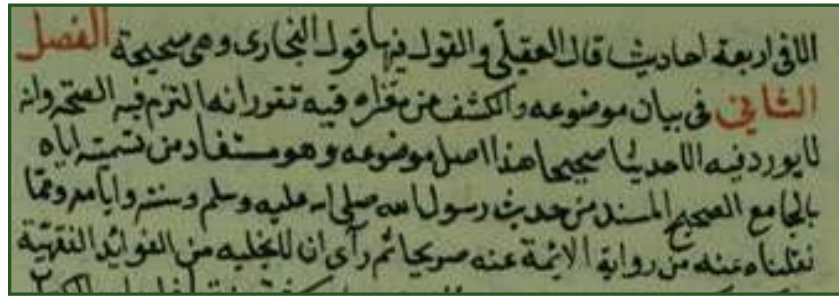 الا في اربعة احاديث قال العقيلي والقول فيها قول البخارى وهى صحيحة الفصل
الثاني في بيان موضوعه والكشف عن مغزاه فيه تقرر انه التزم فيه الصحة وانه
لا يورد فيه الا حديثا صحيحا هذا اصل موضوعه وهو مستفاد من تسميته اياه
بالجامع الصحيح المسند من حديث رسول الله صلى الله عليه وسلم وسننه وايامه ومما
نقلناه عنه من رواية الايمة عنه صريحا ثم رأى ان لا يخليه من الفوايد الفقهية